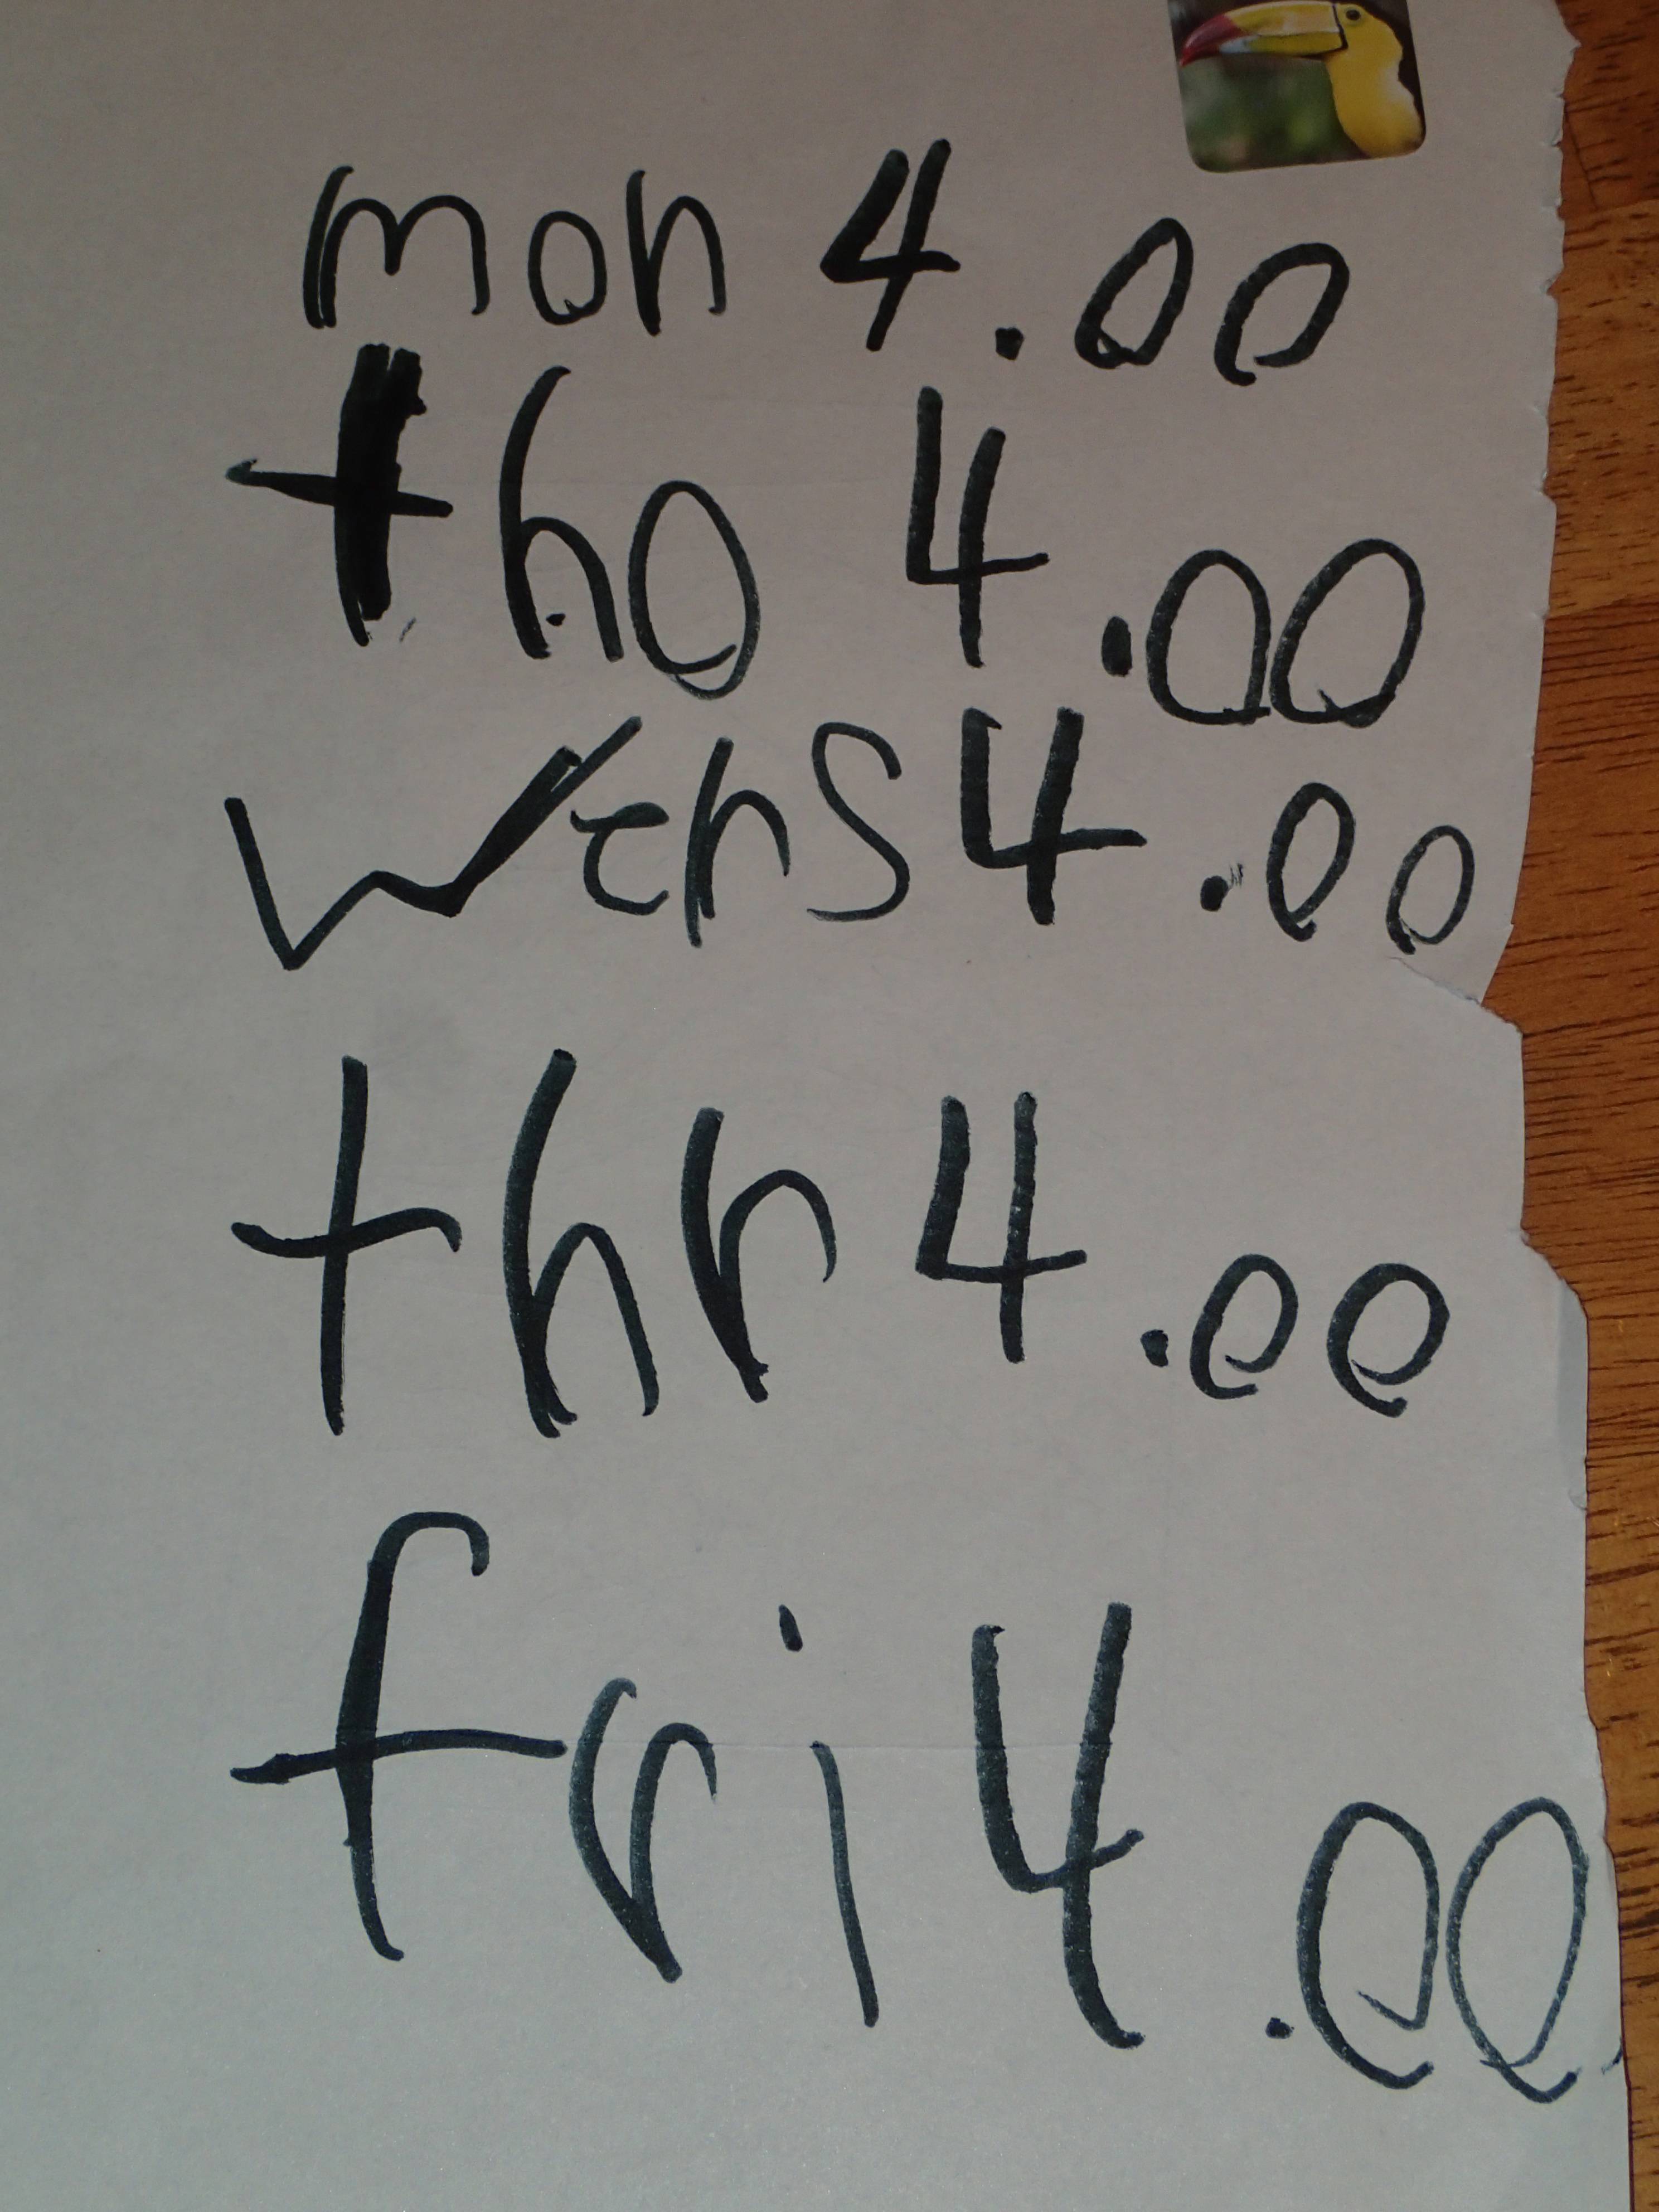 mon 4.00
tho 4.00
wens 4.00
thr 4.00
fri 4.00